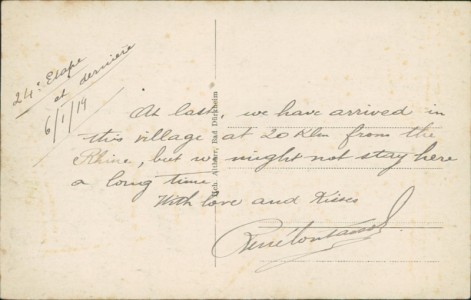 24e Etape
et dernière
6/1/19
At last, we have arrived in
this village at 20 Klm from the
Rhine, but we might not stay here
a long time.
With love and Kisses
Bad Dürkheim